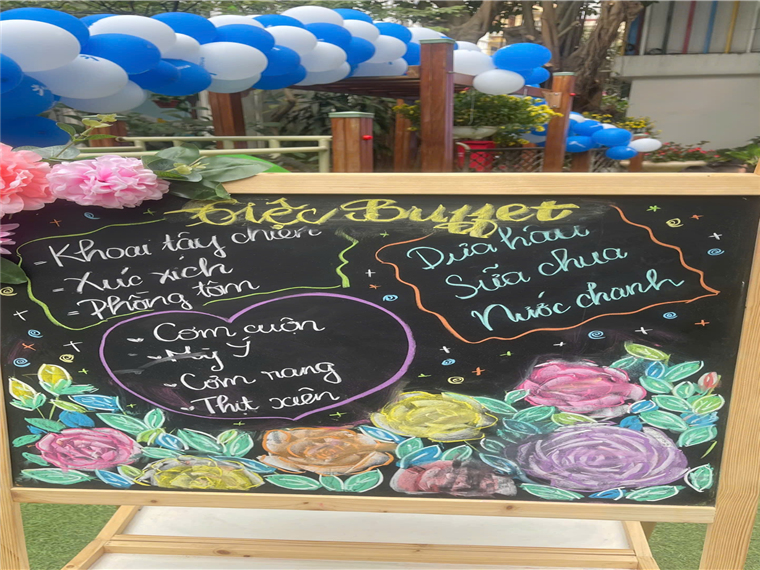 Tiệc Buffet
- Khoai tây chiên
- Xúc xích
- Phồng tôm
- Cơm cuộn
- Mỳ Ý
- Cơm rang
- Thịt xiên
Dưa hấu
Sữa chua
Nước chanh